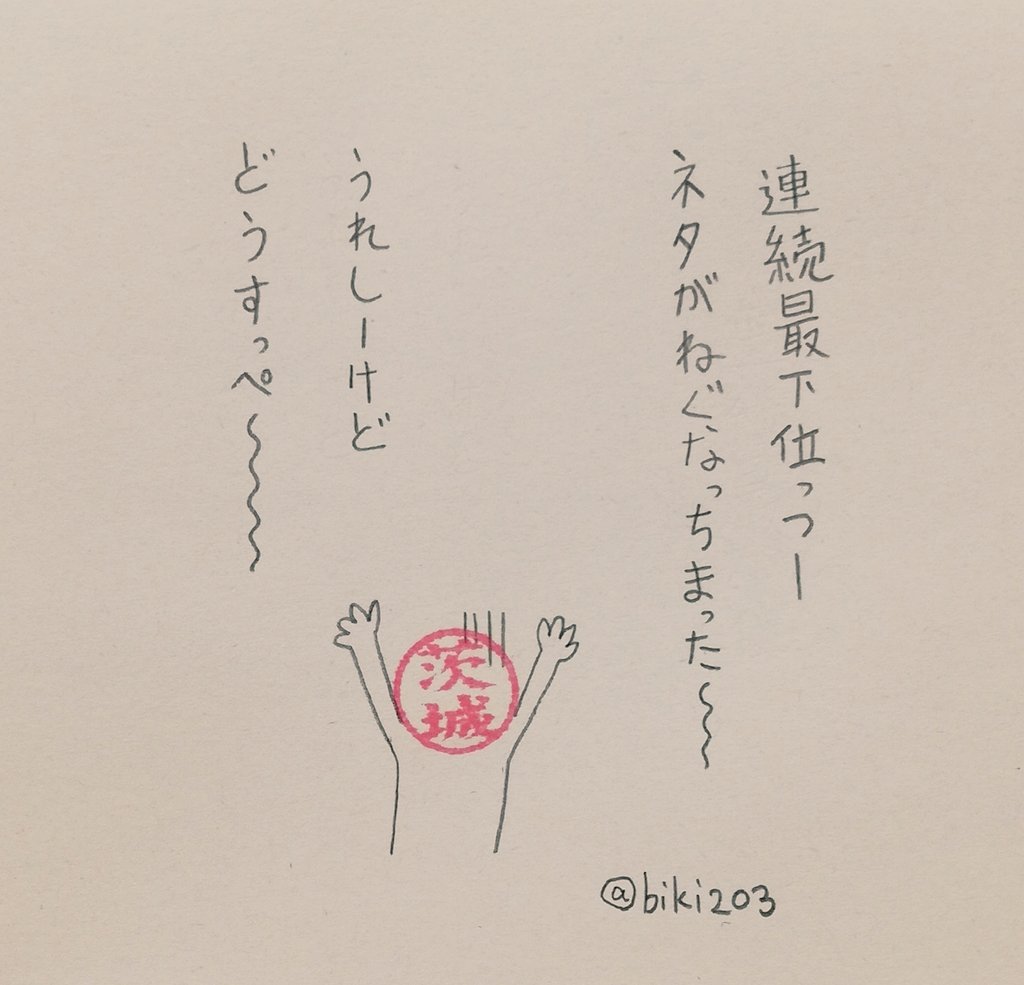 連続最下位っつー
ネタがねぐなっちまった〜〜〜
うれしーけど
どうすっぺ〜〜〜〜
茨城
@biki203